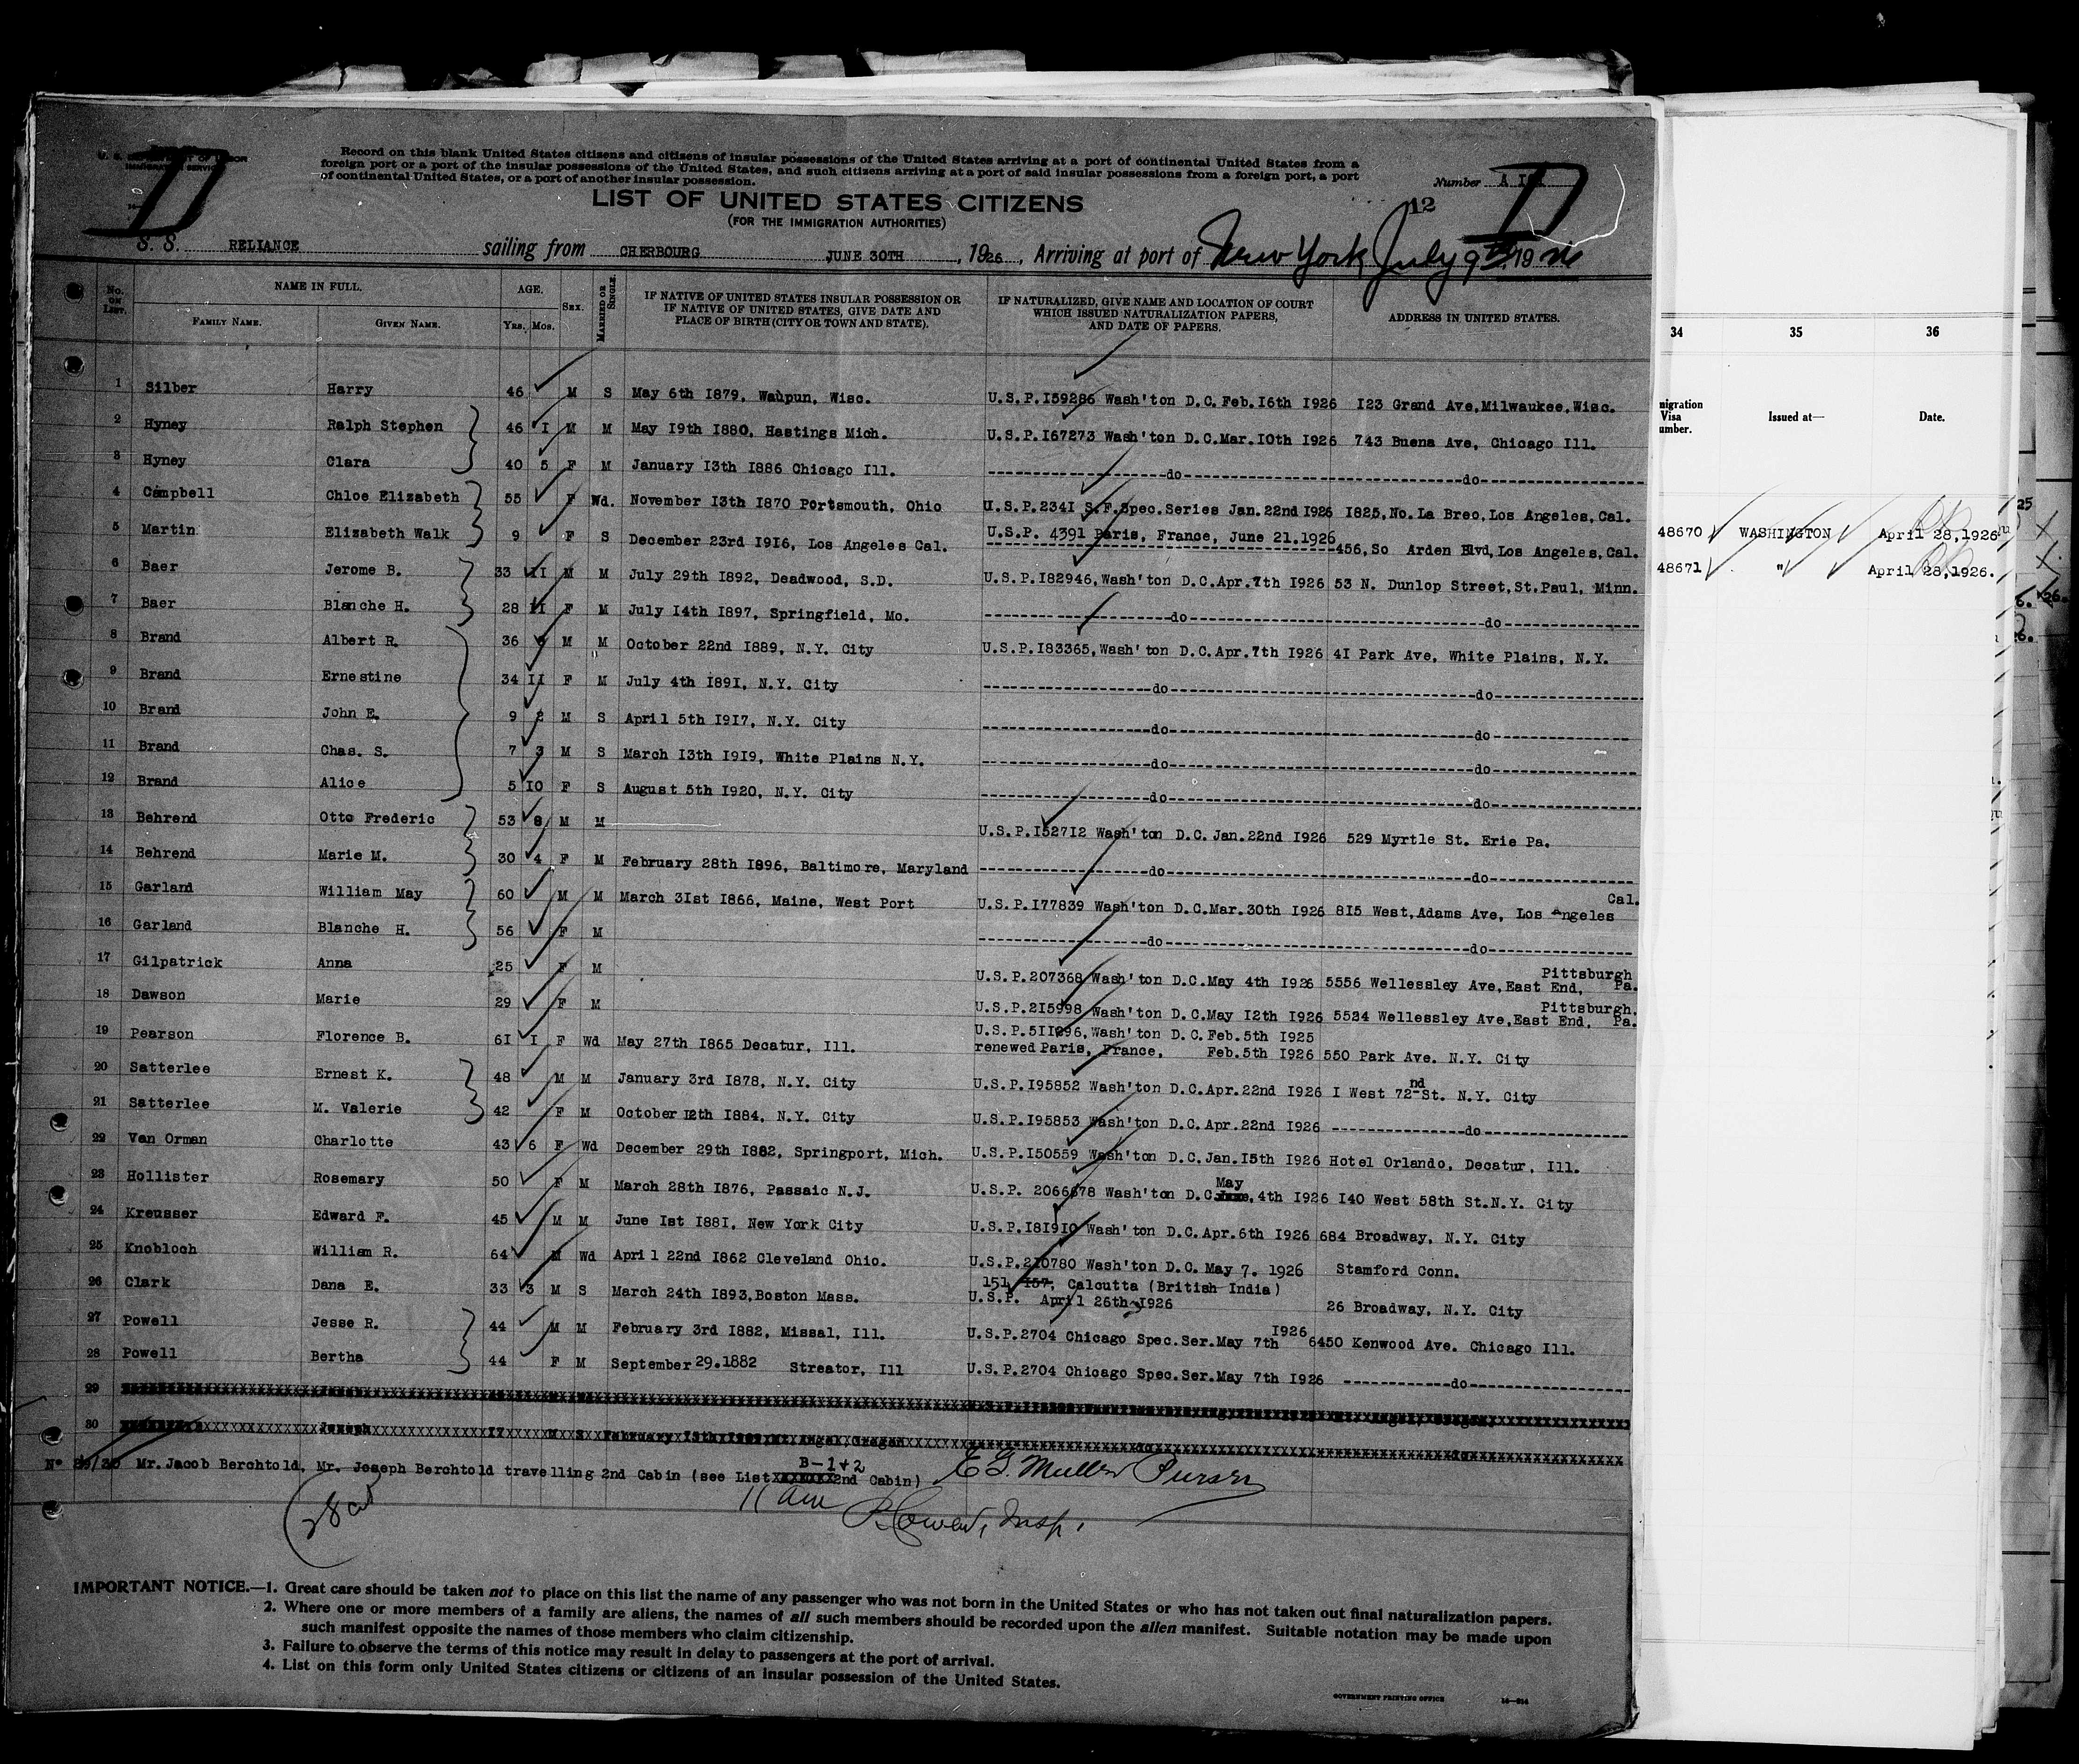 U. S. DEPARTMENT OF LABOR
IMMIGRATION SERVICE
Record on this blank United States citizens and citizens of insular possessions of the United States arriving at a port of continental United States from a
foreign port or a port of the insular possessions of the United States, and such citizens arriving at a port of said insular possessions from a foreign port, a port
of continental United States, or a port of another insular possession.
Number A
LIST OF UNITED STATES CITIZENS
12
(FOR THE IMMIGRATION AUTHORITIES)
S. S. RELIANCE sailing from CHERBOURG JUNE 30TH, 1926, Arriving at port of New York July 9th 1926
No. ON LIST. NAME IN FULL. AGE. SEX. MARRIED OR SINGLE. IF NATIVE OF UNITED STATES INSULAR POSSESSION OR IF NATIVE OF UNITED STATES, GIVE DATE AND PLACE OF BIRTH (CITY OR TOWN AND STATE). IF NATURALIZED, GIVE NAME AND LOCATION OF COURT WHICH ISSUED NATURALIZATION PAPERS, AND DATE OF PAPERS. ADDRESS IN UNITED STATES.
FAMILY NAME. GIVEN NAME. YRS. MOS.
1 Silber Harry 46 M S May 6th I879, Waupun, Wisc. U.S.P.I59286 Wash'ton D.C. Feb.I6th I926 I23 Grand Ave,Milwaukee,Wisc.
2 Hyney Ralph Stephen 46 I M M May I9th I880, Hastings Mich. U.S.P.I67273 Wash'ton D.C.Mar.IOth I926 743 Buena Ave, Chicago Ill.
3 Hyney Clara 40 5 F M January I3th I886 Chicago Ill. do do
4 Campbell Chloe Elizabeth 55 F Wd. November I3th I870 Portsmouth, Ohio U.S.P.234I S.F.Spec.Series Jan.22nd I926 I825,No.La Breo,Los Angeles,Cal.
5 Martin Elizabeth Walk 9 F S December 23rd I9I6, Los Angeles Cal. U.S.P. 4391 Paris, France, June 21.1926 456,So Arden Blvd,Los Angeles,Cal.
6 Baer Jerome B. 33 II M M July 29th I892, Deadwood, S.D. U.S.P.I82946,Wash'ton D.C.Apr.7th I926 53 N. Dunlop Street,St.Paul, Minn.
7 Baer Blanche H. 28 II F M July I4th I897, Springfield, Mo. do do
8 Brand Albert R. 36 M M October 22nd I889, N.Y. City U.S.P.I83365,Wash'ton D.C.Apr.7th I926 4I Park Ave, White Plains, N.Y.
9 Brand Ernestine 34 II F M July 4th I89I, N.Y. City do do
10 Brand John E. 9 2 M S April 5th I9I7, N.Y. City do do
11 Brand Chas. S. 7 3 M S March I3th I9I9, White Plains N.Y. do do
12 Brand Alice 5 IO F S August 5th I920, N.Y. City do do
13 Behrend Otto Frederic 53 8 M M U.S.P.I527I2 Wash'ton D.C. Jan.22nd I926 529 Myrtle St. Erie Pa.
14 Behrend Marie M. 30 4 F M February 28th I896, Baltimore, Maryland do do
15 Garland William May 60 M M March 3Ist I866, Maine, West Port U.S.P.I77839 Wash'ton D.C.Mar.30th I926 8I5 West,Adams Ave, Los Angeles Cal.
16 Garland Blanche H. 56 F M do do
17 Gilpatrick Anna 25 F M U.S.P.207368 Wash'ton D.C.May 4th I926 5556 Wellessley Ave,East End, Pittsburgh Pa.
18 Dawson Marie 29 F M U.S.P.2I5998 Wash'ton D.C.May I2th I926 5524 Wellessley Ave,East End, Pittsburgh, Pa.
19 Pearson Florence B. 6I I F Wd May 27th I865 Decatur, Ill. U.S.P.5II296,Wash'ton D.C.Feb.5th I925
renewed Paris, France, Feb.5th I926 550 Park Ave. N.Y. City
20 Satterlee Ernest K. 48 M M January 3rd I878, N.Y. City U.S.P.I95852 Wash'ton D.C.Apr.22nd I926 I West 72nd St. N.Y. City
21 Satterlee M. Valerie 42 F M October 12th I884, N.Y. City U.S.P.I95853 Wash'ton D.C.Apr.22nd I926 do
22 Van Orman Charlotte 43 6 F Wd December 29th I882, Springport, Mich. U.S.P.I50559 Wash'ton D.C.Jan.I5th I926 Hotel Orlando, Decatur, Ill.
23 Hollister Rosemary 50 F M March 28th I876, Passaic N.J. U.S.P. 2066678 Wash'ton D.C. May 4th I926 I40 West 58th St.N.Y. City
24 Kreusser Edward F. 45 M M June Ist I88I, New York City U.S.P.I8I9IO Wash'ton D.C.Apr.6th I926 684 Broadway, N.Y. City
25 Knobloch William R. 64 M Wd April 22nd I862 Cleveland Ohio. U.S.P.2I0780 Wash'ton D.C. May 7. 1926 Stamford Conn.
26 Clark Dana E. 33 3 M S March 24th I893,Boston Mass. U.S.P. 151 I57, Calcutta (British India)
April 26th I926 26 Broadway, N.Y. City
27 Powell Jesse R. 44 M M February 3rd I882, Missal, Ill. U.S.P.2704 Chicago Spec.Ser.May 7th I926 6450 Kenwood Ave. Chicago Ill.
28 Powell Bertha 44 F M September 29.1882 Streator, Ill U.S.P.2704 Chicago Spec.Ser.May 7th I926 do
29
30 Joseph I7 M S February I3th Angel, Oregon do
No 29/30 Mr. Jacob Berchtold, Mr. Joseph Berchtold travelling 2nd Cabin (see List B-1+2 2nd Cabin) E G. Muller Purser
28 cit 11 am Insp.
IMPORTANT NOTICE.—1. Great care should be taken not to place on this list the name of any passenger who was not born in the United States or who has not taken out final naturalization papers.
2. Where one or more members of a family are aliens, the names of all such members should be recorded upon the alien manifest. Suitable notation may be made upon
such manifest opposite the names of those members who claim citizenship.
3. Failure to observe the terms of this notice may result in delay to passengers at the port of arrival.
4. List on this form only United States citizens or citizens of an insular possession of the United States.
GOVERNMENT PRINTING OFFICE
34 35 36
migration Visa umber. Issued at— Date.
48670 WASHINGTON April 28,1926
48671 " April 28,1926.